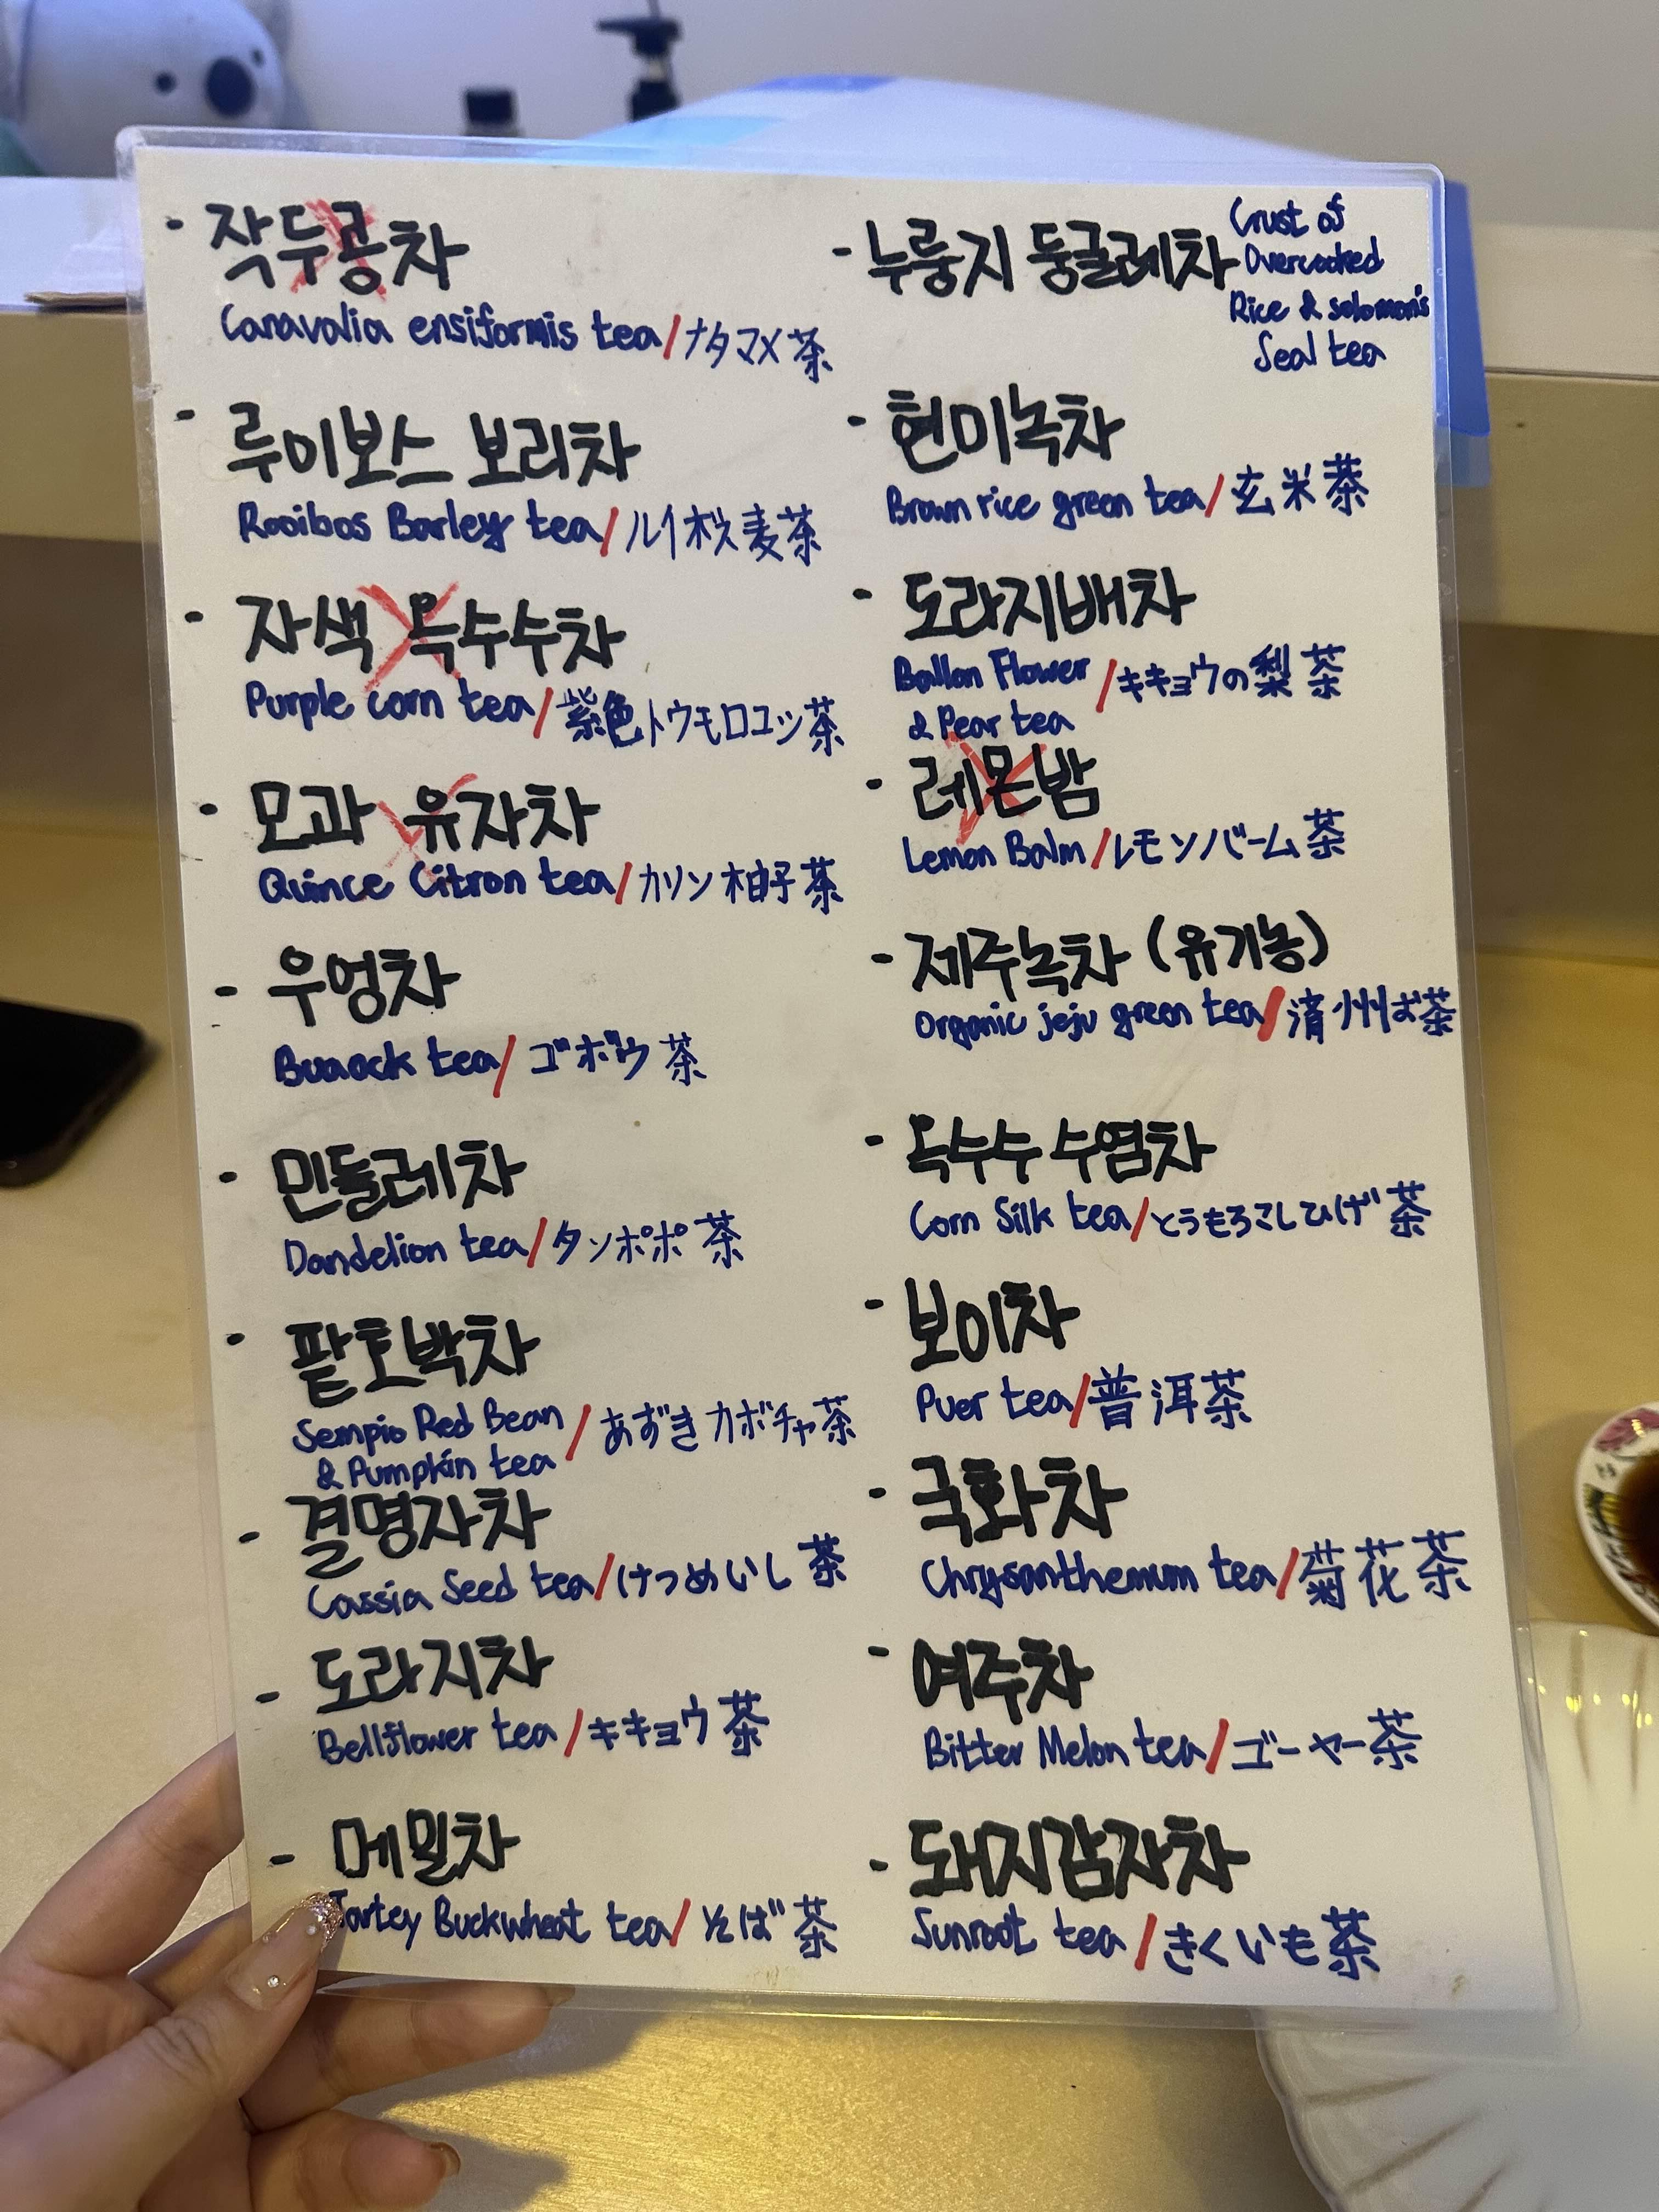 - 작두콩차
Canavalia ensiformis tea/ナタマメ茶
- 루이보스 보리차
Rooibos Barley tea/ルイボス麦茶
- 자색 옥수수차
Purple corn tea/紫色トウモロコシ茶
- 모과 유자차
Quince Citron tea/カリン柚子茶
- 우엉차
tea/ゴボウ茶
- 민들레차
Dandelion tea/タンポポ茶
- 팥호박차
Sempio Red Bean
& Pumpkin tea
/あずきカボチャ茶
- 결명자차
Cassia Seed tea/けつめいし茶
- 도라지차
Bellflower tea/キキョウ茶
- 메밀차
Buckwheat tea/そば茶
- 누룽지 둥굴레차
Crust of
Overcooked
Rice & solomon's
Seal tea
- 현미녹차
Brown rice green tea/玄米茶
- 도라지배차
Ballon Flower
& Pear tea
/キキョウの梨茶
- 레몬밤
Lemon Balm/レモンバーム茶
- 제주녹차 (유기농)
Organic jeju green tea/済州お茶
- 옥수수 수염차
Corn Silk tea/とうもろこしひげ茶
- 보이차
Puer tea/普洱茶
- 국화차
Chrysanthemum tea/菊花茶
- 여주차
Bitter Melon tea/ゴーヤー茶
- 돼지감자차
Sunroot tea/きくいも茶